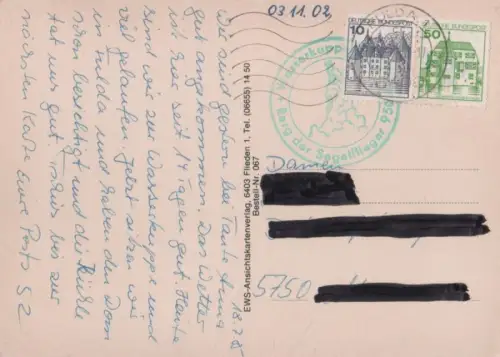 03.11.02
18.7.85
Wir sind gestern bei Tante Anna
gut angekommen. Das Wetter
ist hier seit 14 Tagen gut. Heute
sind wir zur Wasserkuppe und
viel gelaufen. Jetzt sitzen wir
in Fulda und haben den Dom
schon besichtigt und die Kühle
tat uns gut. Tschüs bis zur
nächsten Karte Eure
EWS-Ansichtskartenverlag, 6403 Flieden 1, Tel. (06655) 14 50
Bestell-Nr. 067
10
DEUTSCHE BUNDESPOST
50
DEUTSCHE BUNDESPOST
Wasserkuppe
Berg der Segelflieger 950
5750